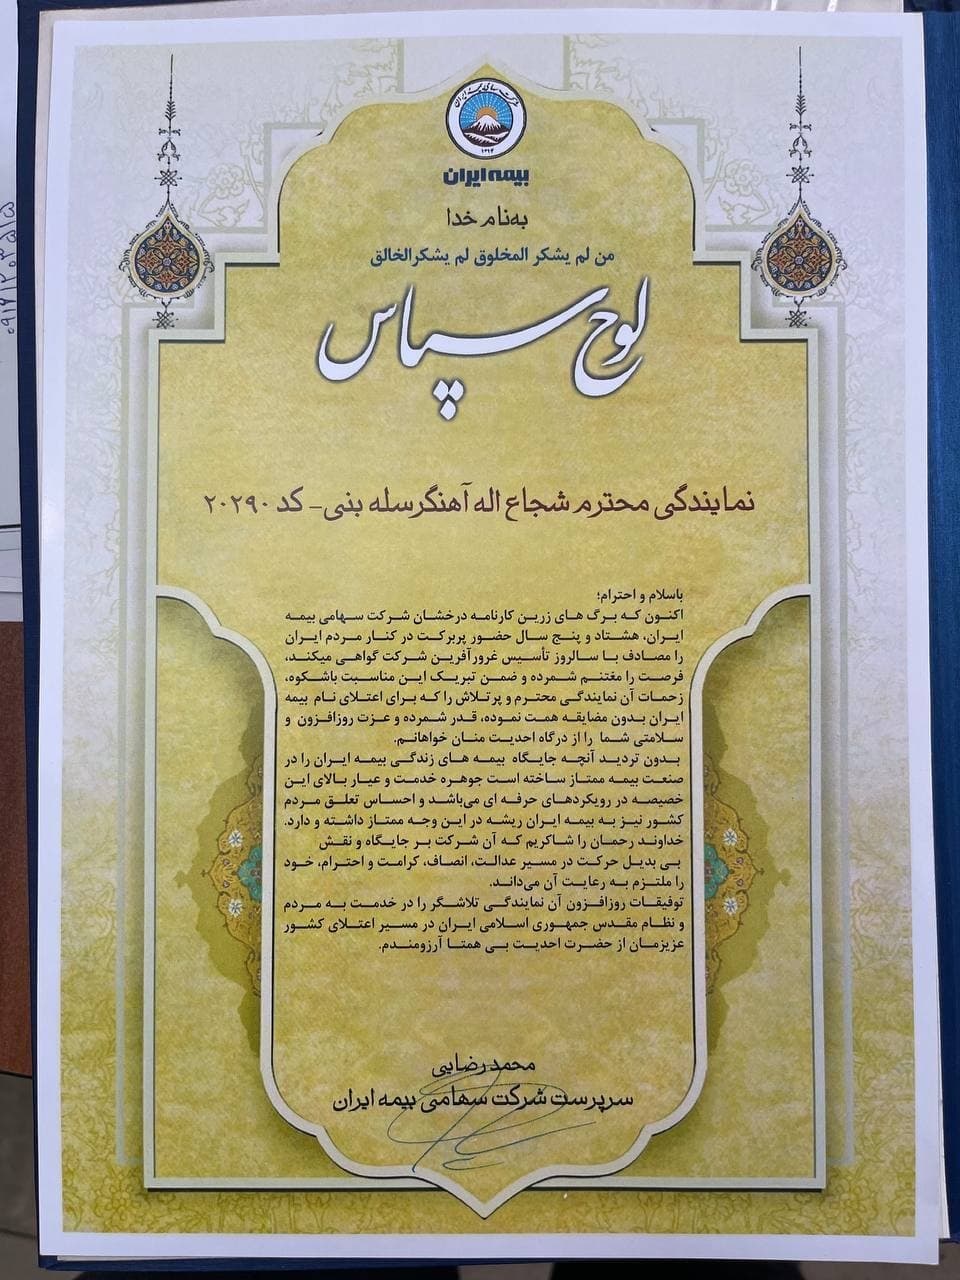 شرکت سهامی بیمه ایران
۱۳۱۴
بیمه ایران
به نام خدا
من لم یشکر المخلوق لم یشکرالخالق
لوح سپاس
نمایندگی محترم شجاع اله آهنگرسله بنی- کد ۲۰۲۹۰
باسلام و احترام؛
اکنون که برگ های زرین کارنامه درخشان شرکت سهامی بیمه
ایران، هشتاد و پنج سال حضور پربرکت در کنار مردم ایران
را مصادف با سالروز تأسیس غرورآفرین شرکت گواهی میکند،
فرصت را مغتنم شمرده و ضمن تبریک این مناسبت باشکوه،
زحمات آن نمایندگی محترم و پرتلاش را که برای اعتلای نام بیمه
ایران بدون مضایقه همت نموده، قدر شمرده و عزت روزافزون و
سلامتی شما را از درگاه احدیت منان خواهانم.
بدون تردید آنچه جایگاه بیمه های زندگی بیمه ایران را در
صنعت بیمه ممتاز ساخته است جوهره خدمت و عیار بالای این
خصیصه در رویکردهای حرفه ای می‌باشد و احساس تعلق مردم
کشور نیز به بیمه ایران ریشه در این وجه ممتاز داشته و دارد.
خداوند رحمان را شاکریم که آن شرکت بر جایگاه و نقش
بی بدیل حرکت در مسیر عدالت، انصاف، کرامت و احترام، خود
را ملتزم به رعایت آن می‌داند.
توفیقات روزافزون آن نمایندگی تلاشگر را در خدمت به مردم
و نظام مقدس جمهوری اسلامی ایران در مسیر اعتلای کشور
عزیزمان از حضرت احدیت بی همتا آرزومندم.
محمدرضایی
سرپرست شرکت سهامی بیمه ایران